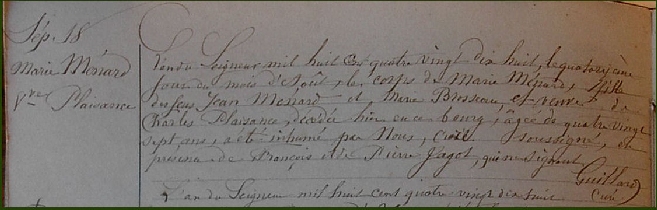 Sép. 18
Marie Ménard
Vve Plaisance
L'an du Seigneur mil huit cent quatre vingt dix huit, le quatorzième
jour du mois d'Août, le corps de Marie Ménard, fille
de feu Jean Menard et Marie Brosseau, et veuve de
Charles Plaisance, décédée hier en ce bourg, agée de quatre vingt
sept ans, a été inhumé par Nous, Curé Soussigné, en
présence de François et de Pierre Pagot, qui ont signé
Guillard
Curé
L'an du Seigneur mil huit cent quatre vingt dix huit